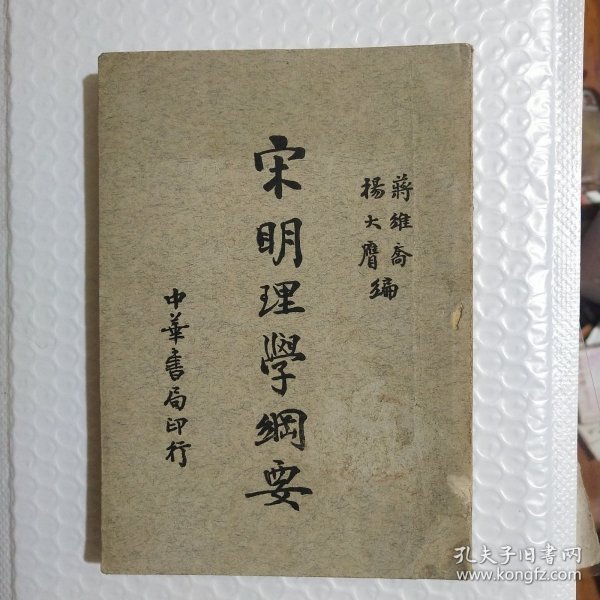 蔣維喬
楊大膺 編
宋明理學綱要
中華書局印行
孔夫子旧書网
www.kongfz.com